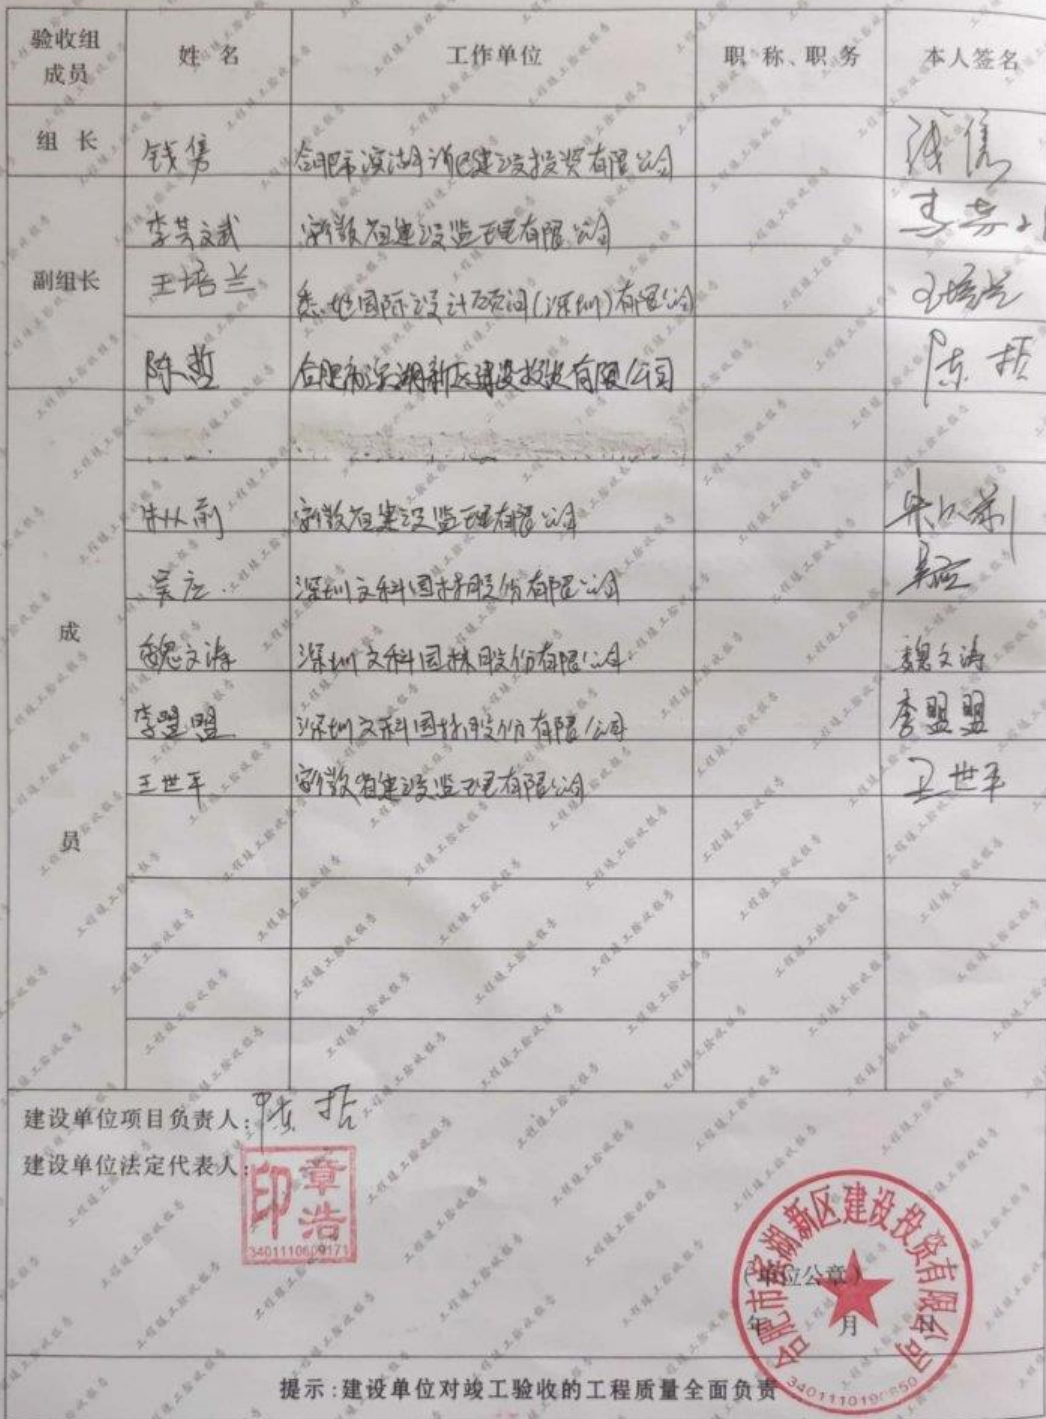 验收组成员 姓 名 工作单位 职 称、职 务 本人签名
组 长 钱隽 合肥市滨湖新区建设投资有限公司 钱隽
李芸武 安徽省建设监理有限公司
副组长 王培兰 悉地国际设计顾问(深圳)有限公司 王培兰
陈哲 合肥市滨湖新区建设投资有限公司 陈哲
朱从前 安徽省建设监理有限公司 朱从前
吴应 深圳文科园林股份有限公司 吴应
魏文涛 深圳文科园林股份有限公司 魏文涛
成 李盟盟 深圳文科园林股份有限公司 李盟盟
王世平 安徽省建设监理有限公司 王世平
员
建设单位项目负责人: 陈哲
建设单位法定代表人:
章浩印
3401110609171
合肥市滨湖新区建设投资有限公司
(单位公章)
年 月 日
提示:建设单位对竣工验收的工程质量全面负责
工程竣工验收报告